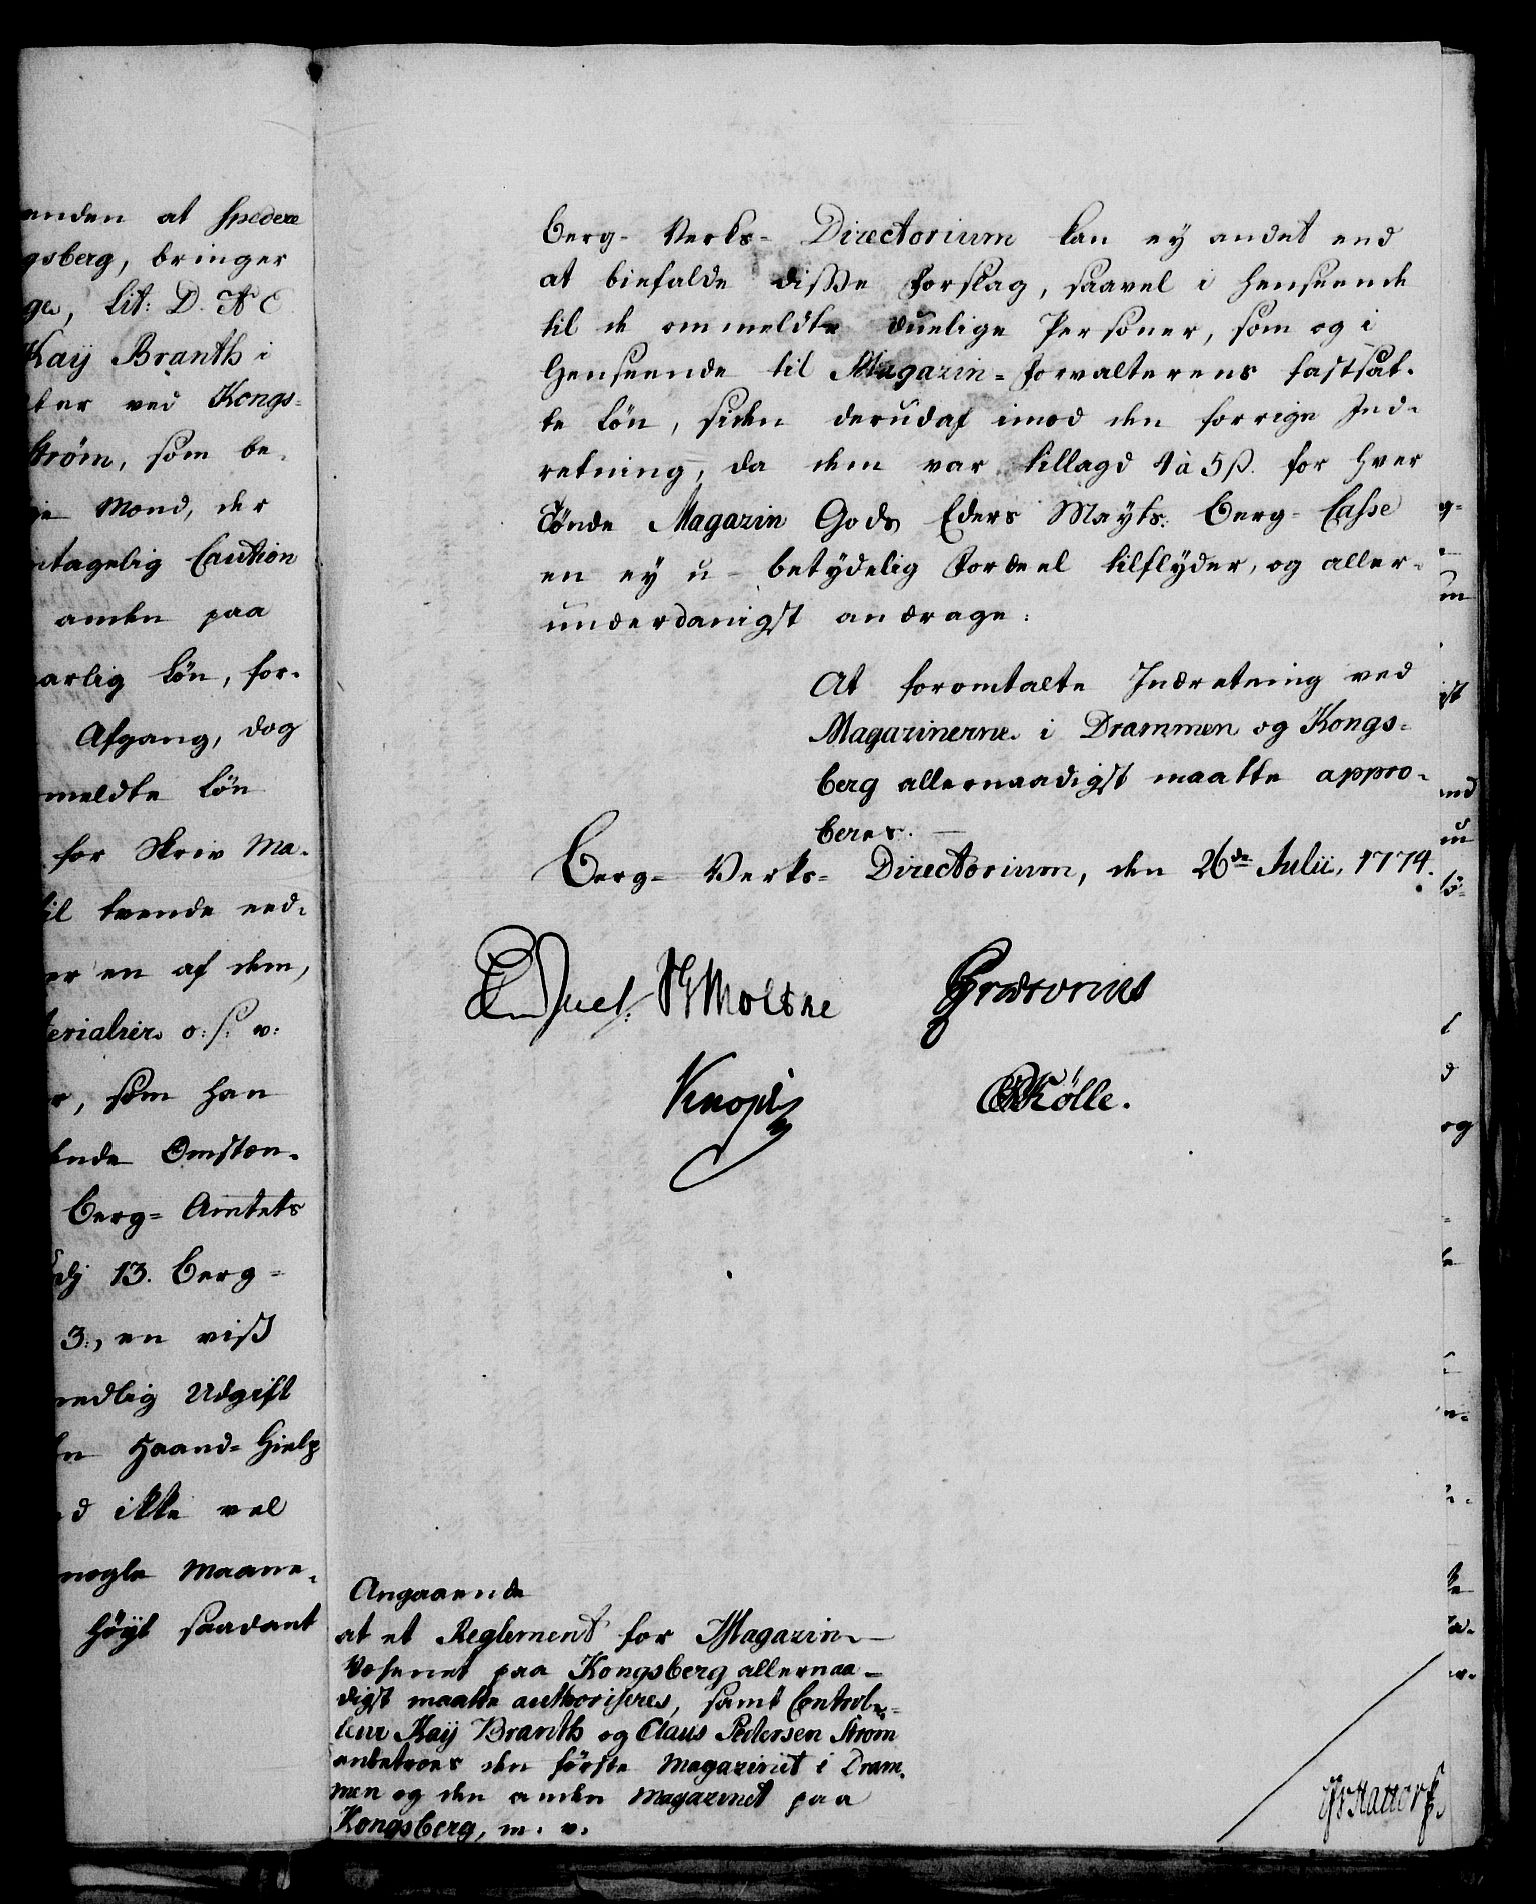 anden at spedere
gsberg, bringer
ge, Lit: D. & E
Kaÿ Branth i
ter ved Kongs=
Strøm, som be-
Mand, der
ntagelig Caution
anden paa
arlig Løn, for-
Afgang, dog
meldte Løn
for Skriv Ma-
til tvende eed-
er en af dem,
terialier o: s: v:
r, som han
ende Omstæn-
Berg= Amtets
13. Berg=
3:, en viss
nedlig Udgift
en Haand= Hielp
d ikke vel
nogle Maane-
høyt saadant
Berg= Verks= Directorium kan ey andet end
at biefalde disse Forslag, saavel i Henseende
til de ommeldte duelige Personer, som og i
Henseende til Magazin= Forvalterens fastsat-
te Løn, siden derudaf imod den forrige Ind-
retning, da dem var tillagd 4 à 5 ß. for hver
Tønde Magazin Gods Eders Mayts: Berg= Casse
en ey u- betydelig Fordeel tilflyder, og aller-
underdanigst andrage:
At foromtalte Indretning ved
Magazinerne i Drammen og Kongs=
berg allernaadigst maatte appro-
beres. —
Berg= Verks= Directorium, den 26de Julii, 1774.
Moltke Prætorius
Knoph Kölle.
Angaaende
at et Reglement for Magazin-
Væsenet paa Kongsberg allernaa-
digst maatte authoriseres, samt Controle-
leur Kaÿ Branth og Claus Pedersen Strøm
anbetroes den første Magazinet i Dram-
men og den anden Magazinet paa
Kongsberg, m. v.